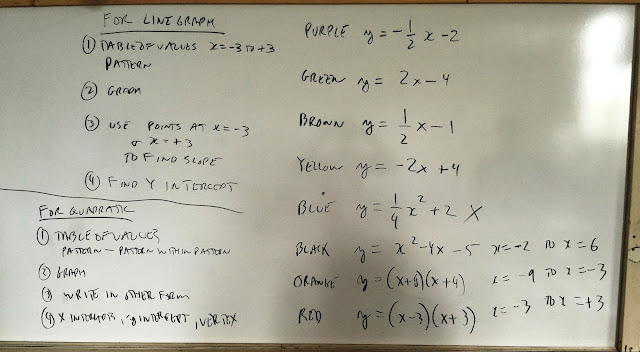 FOR LINE GRAPH
① TABLE OF VALUES x=-3 to +3
PATTERN
② GRAPH
③ USE POINTS AT x=-3
or x=+3
TO FIND SLOPE
④ FIND Y INTERCEPT
FOR QUADRATIC
① TABLE OF VALUES
PATTERN - PATTERN WITHIN PATTERN
② GRAPH
③ WRITE IN OTHER FORM
④ X INTERCEPTS, y INTERCEPT, VERTEX
PURPLE y = -1/2 x - 2
GREEN y = 2x - 4
BROWN y = 1/2 x - 1
YELLOW y = -2x + 4
BLUE y = 1/4 x² + 2 X
BLACK y = x² - 4x - 5 x=-2 to x=6
ORANGE y = (x+8)(x+4) x=-9 to x=-3
RED y = (x-3)(x+3) x=-3 to x=+3